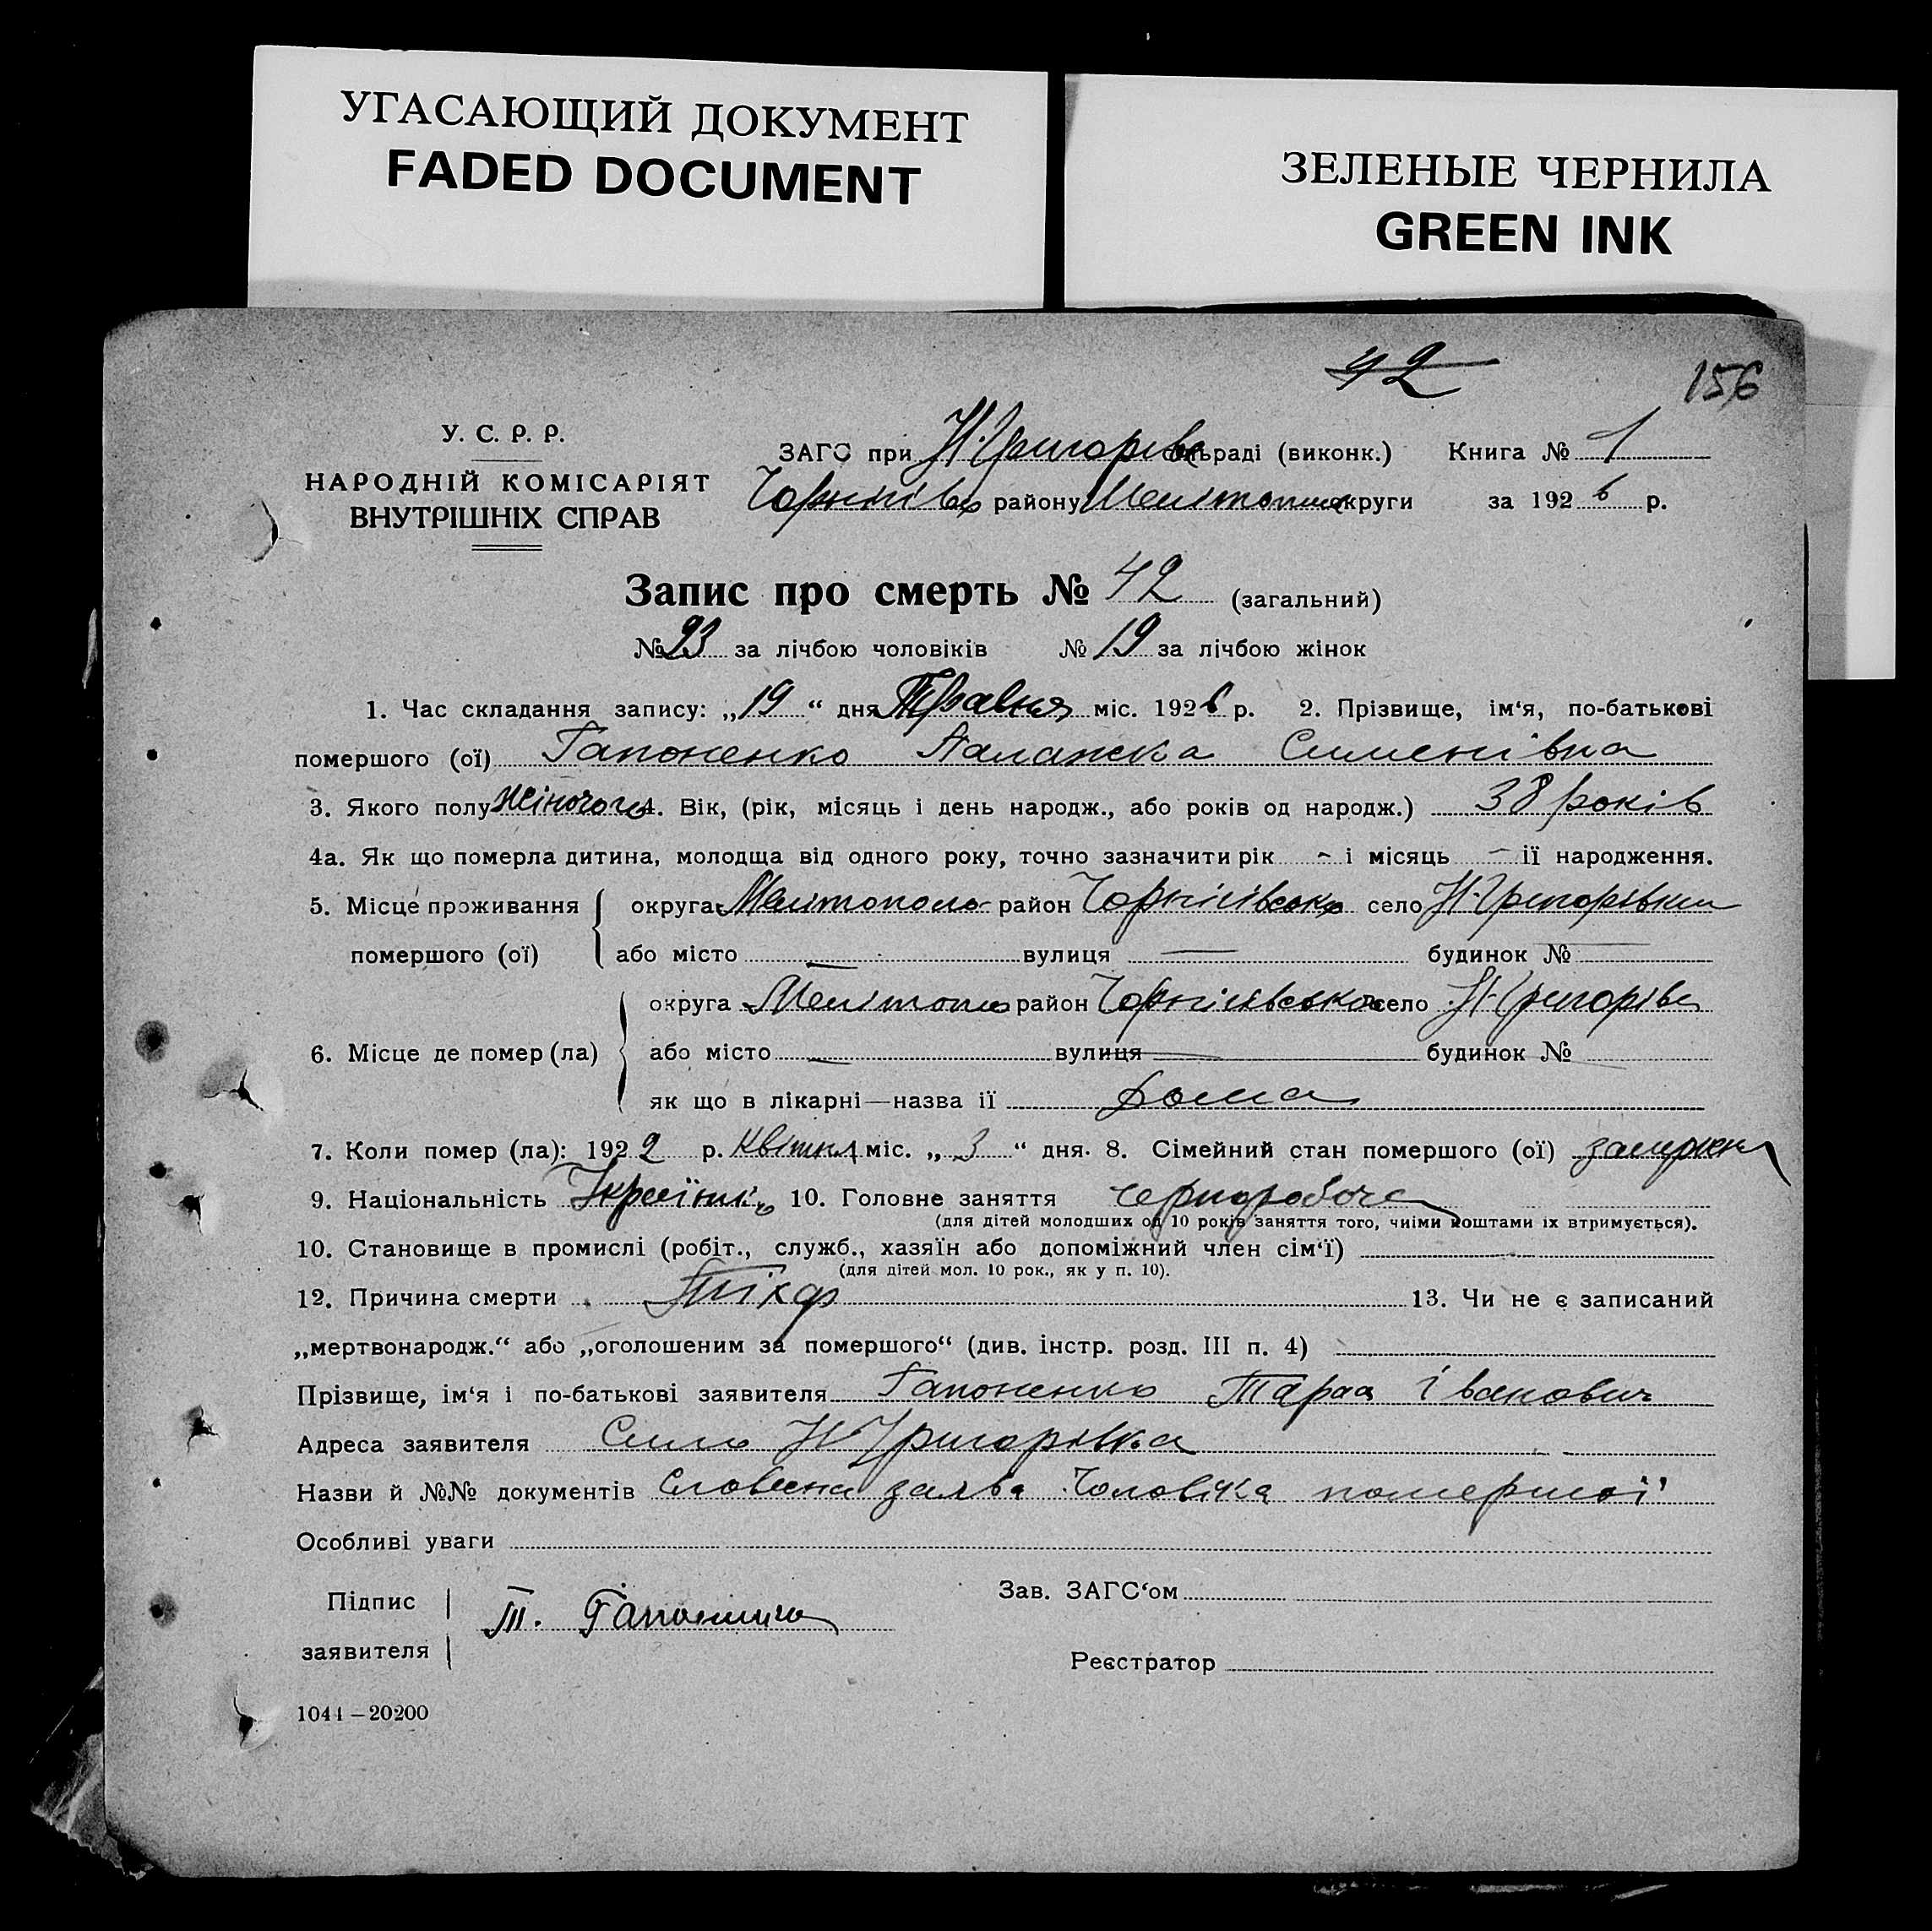 УГАСАЮЩИЙ ДОКУМЕНТ
FADED DOCUMENT
ЗЕЛЕНЫЕ ЧЕРНИЛА
GREEN INK
42
156
У. С. Р. Р.
НАРОДНІЙ КОМІСАРІЯТ
ВНУТРІШНІХ СПРАВ
ЗАГС при Н-Григорівс раді (виконк.) Книга № 1
району округи за 1926 р.
Запис про смерть № 42 (загальний)
№ 23 за лічбою чоловіків № 19 за лічбою жінок
1. Час складання запису: „19“ дня Травня міс. 1926 р. 2. Прізвище, ім‘я, по-батькові
помершого (ої) Гапоненко Палажка Сименівна
3. Якого полу жіночого 4. Вік, (рік, місяць і день народж., або років од народж.) 38 років
4а. Як що померла дитина, молодща від одного року, точно зазначити рік - і місяць - ії народження.
5. Місце проживання округа Мелітополь район Чорнігівсько село Н-Григорівки
помершого (ої) або місто — вулиця — будинок № —
округа Мелітопо район Чорнігівсько село Н-Григорівс
6. Місце де помер (ла) або місто — вулиця — будинок №
як що в лікарні—назва ії дома
7. Коли помер (ла): 1922 р. квітня міс. „3“ дня. 8. Сімейний стан помершого (ої) замужня
9. Національність 10. Головне заняття чернороboча
(для дітей молодших од 10 років заняття того, чиїми коштами іх втримується).
10. Становище в промислі (робіт., служб., хазяїн або допоміжний член сім‘ї)
(для дітей мол. 10 рок., як у п. 10).
12. Причина смерти Тікф 13. Чи не є записаний
„мертвонародж.“ або „оголошеним за помершого“ (див. інстр. розд. III п. 4)
Прізвище, ім‘я і по-батькові заявителя Гапоненко Тарас Іванович
Адреса заявителя Село Н-Григорівка
Назви й №№ документів Словесна заява Чоловіка помершої
Особливі уваги
Підпис
заявителя
Т. Гапоненко
Зав. ЗАГС‘ом
Реєстратор
1041—20200